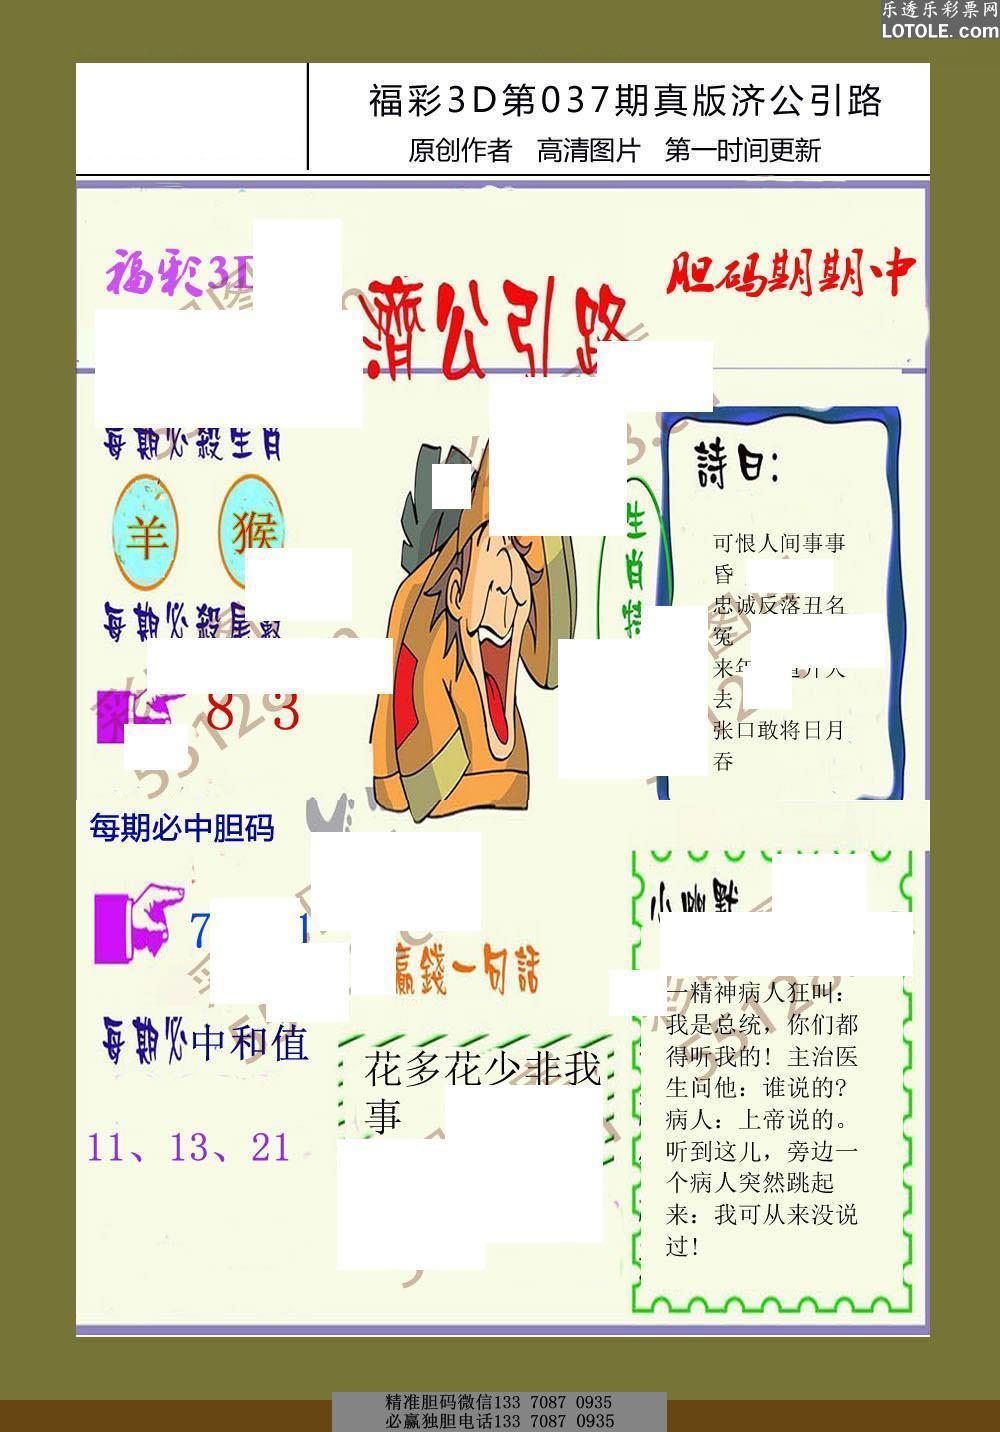 乐透乐彩票网
LOTOLE.com
福彩3D第037期真版济公引路
原创作者 高清图片 第一时间更新
福彩3D
胆码期期中
濟公引路
每期必殺生肖
羊 猴
每期必殺尾
8 3
生肖
詩曰:
可恨人间事事
昏
忠诚反落丑名
冤
来年
去
张口敢将日月
吞
每期必中胆码
7 1
赢錢一句話
每期必中和值
11、13、21
花多花少非我
事
小幽默
一精神病人狂叫:
我是总统，你们都
得听我的! 主治医
生问他: 谁说的?
病人: 上帝说的。
听到这儿，旁边一
个病人突然跳起
来: 我可从来没说
过!
精准胆码微信133 7087 0935
必赢独胆电话133 7087 0935